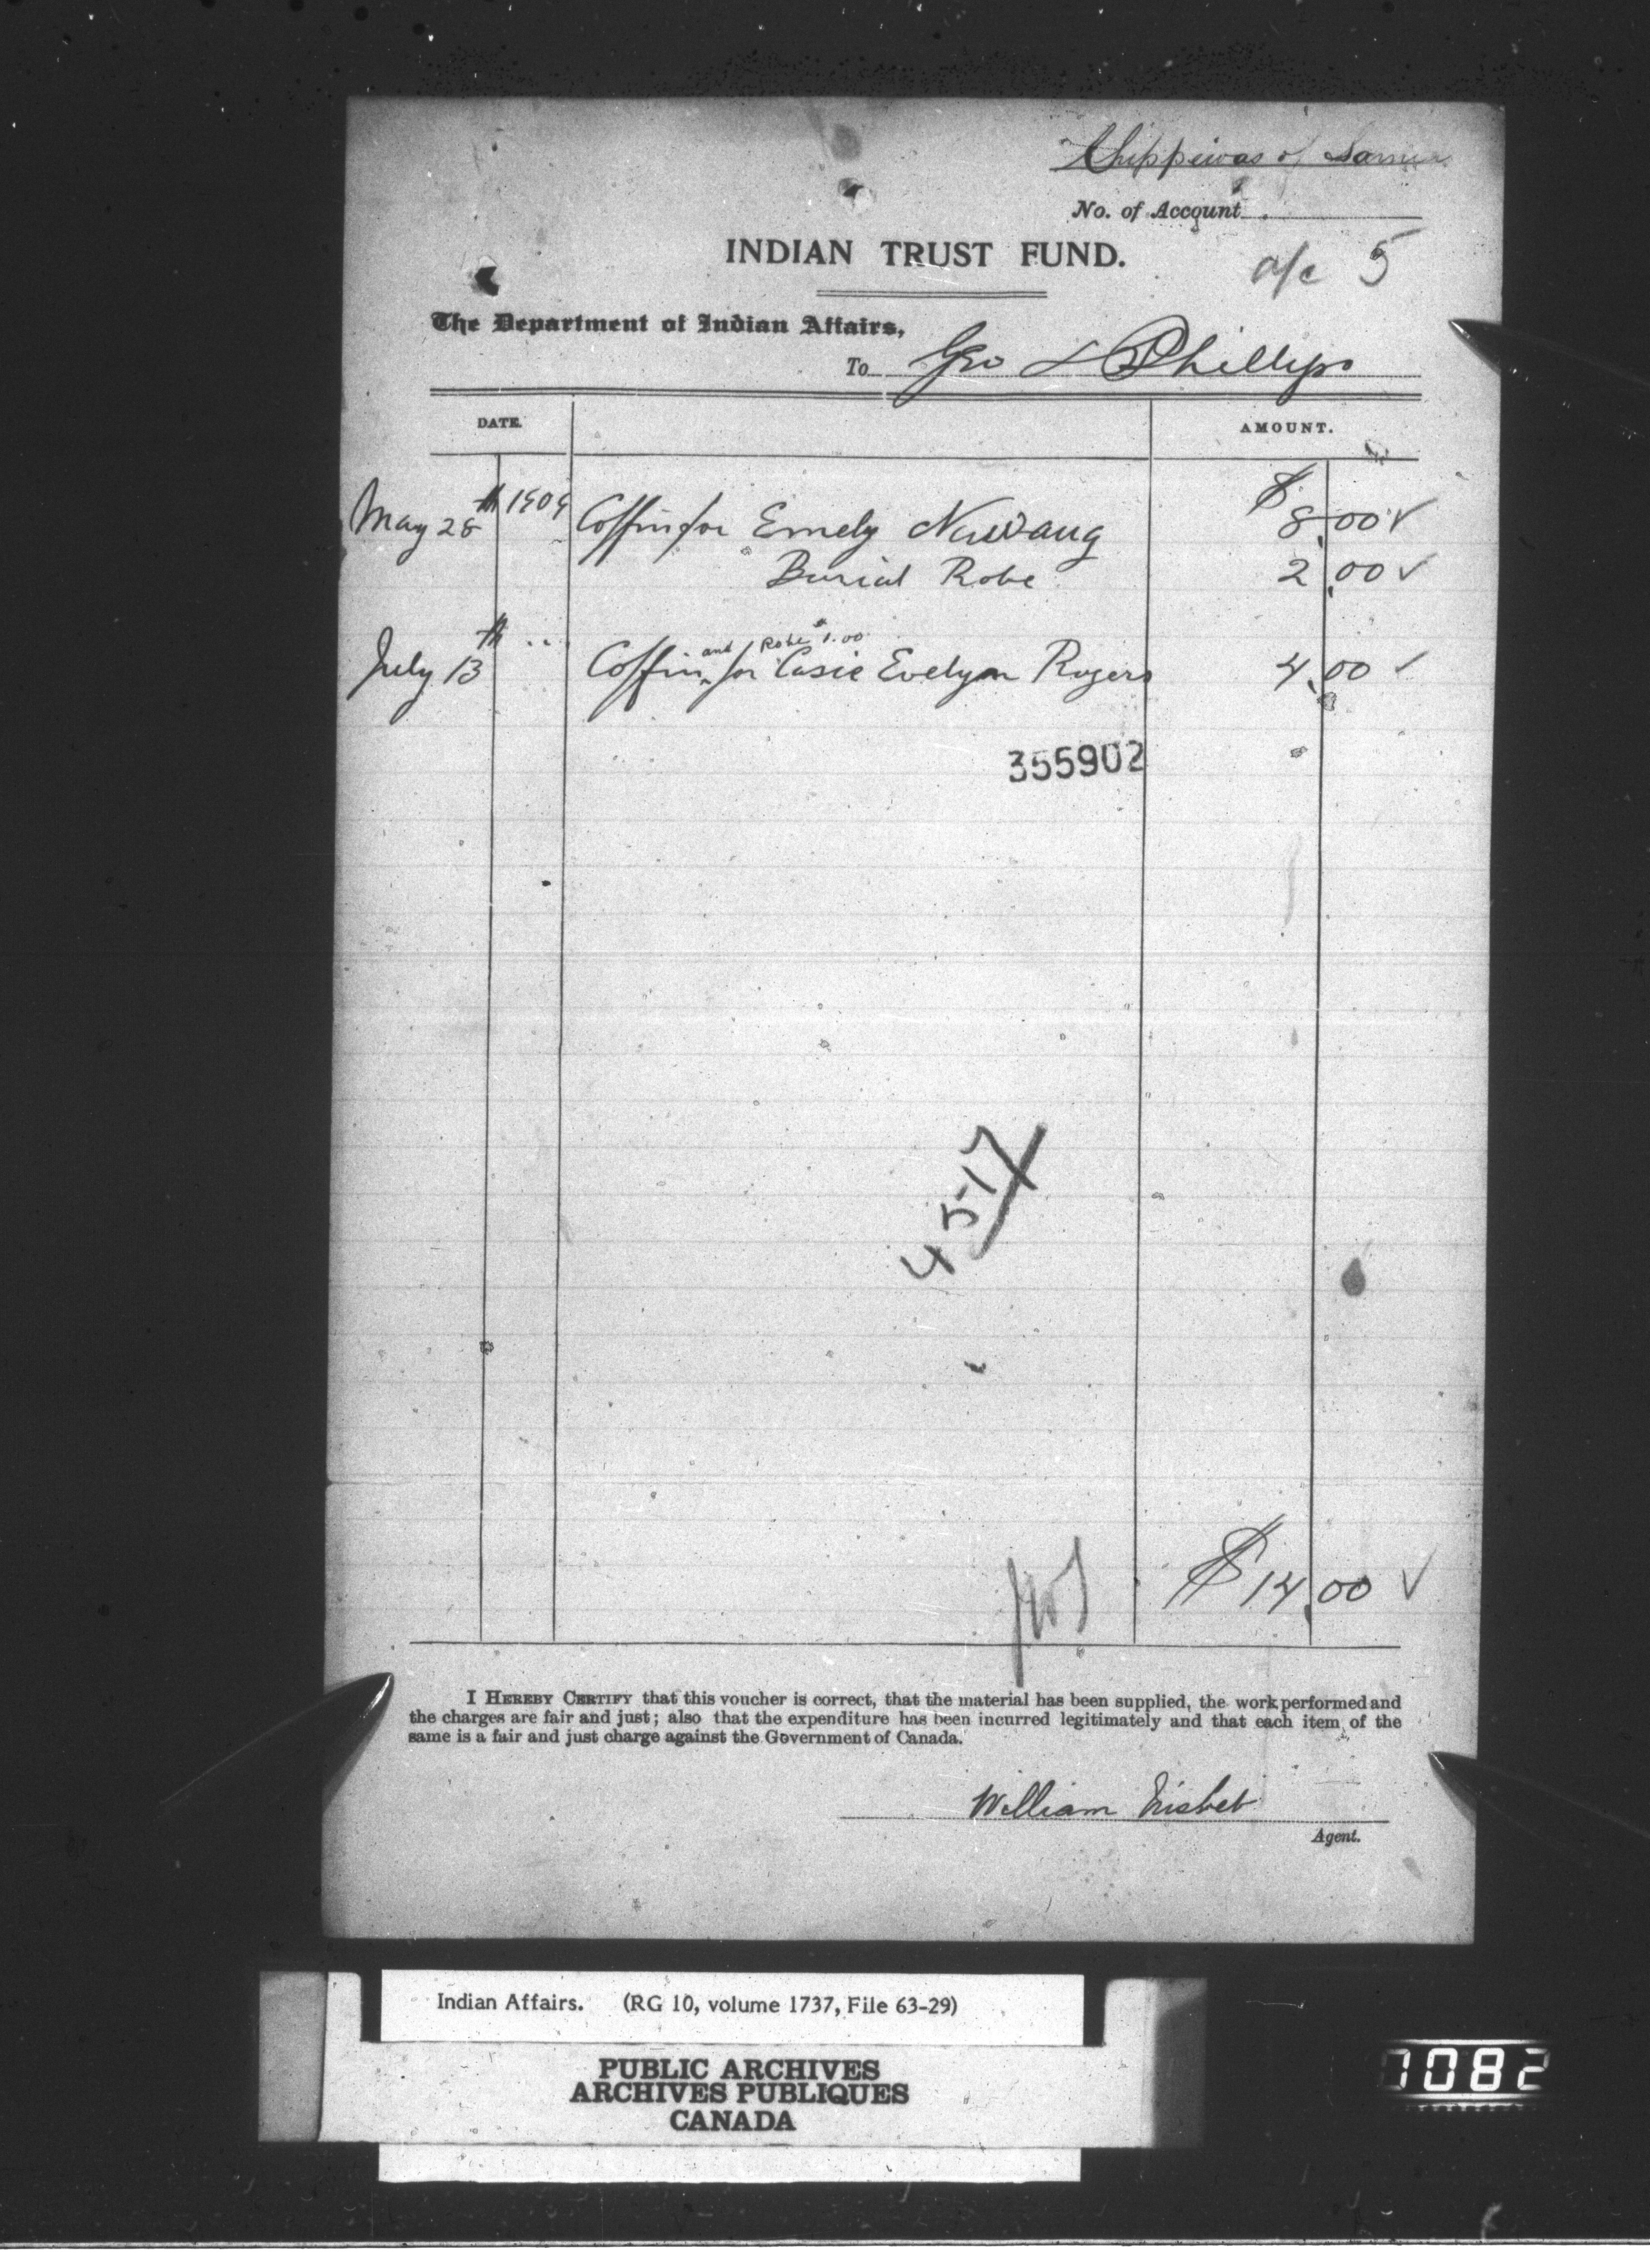 Chippewas of Sarnia
No. of Account
INDIAN TRUST FUND.
a/c 5
The Department of Indian Affairs,
To Geo L Phillips
DATE.
AMOUNT.
May 28th 1909 Coffin for Emely Nawaug $8.00 ✓
Burial Robe 2.00 ✓
and Robe $1.00
July 13th " Coffin for Casie Evelyn Rogers 4.00 ✓
355902
4517
$14.00 ✓
I HEREBY CERTIFY that this voucher is correct, that the material has been supplied, the work performed and
the charges are fair and just; also that the expenditure has been incurred legitimately and that each item of the
same is a fair and just charge against the Government of Canada.
William Nisbet
Agent.
Indian Affairs. (RG 10, volume 1737, File 63-29)
PUBLIC ARCHIVES
ARCHIVES PUBLIQUES
CANADA
1082